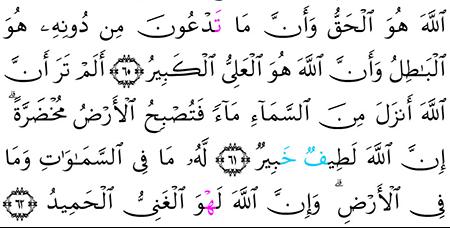 ٱللَّهَ هُوَ ٱلْحَقُّ وَأَنَّ مَا تَدْعُونَ مِن دُونِهِۦ هُوَ
ٱلْبَٰطِلُ وَأَنَّ ٱللَّهَ هُوَ ٱلْعَلِىُّ ٱلْكَبِيرُ ٦٠ أَلَمْ تَرَ أَنَّ
ٱللَّهَ أَنزَلَ مِنَ ٱلسَّمَآءِ مَآءً فَتُصْبِحُ ٱلْأَرْضُ مُخْضَرَّةًۗ
إِنَّ ٱللَّهَ لَطِيفٌ خَبِيرٌ ٦١ لَّهُۥ مَا فِى ٱلسَّمَٰوَٰتِ وَمَا
فِى ٱلْأَرْضِۗ وَإِنَّ ٱللَّهَ لَهْوَ ٱلْغَنِىُّ ٱلْحَمِيدُ ٦٢